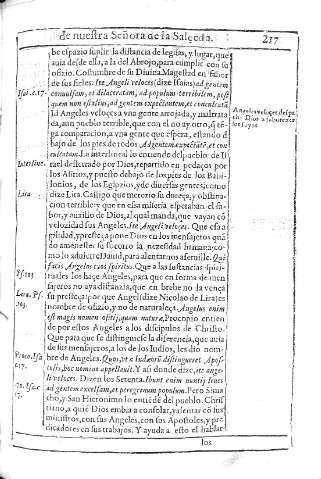 de nuestra Señora de la Salçeda.
217
be espazio suplir la distancia de leguas, y lugar, que
auia desde ella, a la del Abrojo, para cumplir con su
ofizio. Costumbre de su Diuina Magestad en fauor
de sus fieles. Ite Angeli veloces (dize Isaias) ad gentem
conuulsam, et dilaceratam, ad populum terribilem, post
quem non est alius, ad gentem expectantem, et conculcatã
Id Angeles veloces a vna gente arrojada, y maltrata
da, a un pueblo terrible, que con el no ay otro, q̃ tẽ
ga comparacion, a vna gente que espera, estando d
bajo de los pies de todos
Ad gentem expectãtẽ, et con
culcatam. La interlineal lo entiende del pueblo de Is
rael desterrado por Dios, repartido en pedaços por
los Asirios, y puesto debajo de los pies de los Babi-
lonios, de los Egipzios, y de diuersas gentes; como
dize Lira. Castigo que merezio su dureça, y obstina-
cion terrible: y que en esta miseria esperaban el fa-
bor, y auxilio de Dios, al qual manda, que vayan cõ
velozidad sus Angeles. Ite Angeli veloçes. Que esta a
gilidad, y presteça pone Dios en los mensajeros quã
do amenester su socorro la nezesidad humana: co-
mo lo aduierte Dauid, para alentarnos a seruille. Qui
facis Angelos tuos spiritus. Que a las sustancias spiri-
tuales los haçe Angeles, para que en forma de men
sajeros no aya distanzia, que en brebe no la vença
su presteça: por que Angel (dize Nicolao de Lira) es
nombre de ofizio, y no de naturaleça. Angelus enim
est magis nomen officij, quam naturæ. Procopio entien
de por estos Angeles a los discipulos de Christo.
Que para que se distinguiesse la diferencia, que auia
de sus mensajeros, a los de los Iudios, les dio nom-
bre de Angeles. Quos, vt a Iudæorũ distingueret Apos-
tolis, hoc nomine appellauit. Y asi donde dize, ite ange
li veloces. Dizen los Setenta. Ibunt enim nuntij leues
ad gentem excelsam, et peregrinum populum. Pero
cho, y San Hieronimo lo entiẽdẽ del pueblo. Chris
tiano, a quiẽ Dios embia a consolar, y alentar cõ sus
ministros, con sus Angeles, con sus Apostoles, y pre
dicadores en sus trabajos. Y ayuda a esto el hablar
los
Isai. c. 17.
Interline.
Lira
Ps. 103
Lira. Ps.
103.
Proco. Isa
c 17.
70. Isa. c
17.
Angeles veloçes despa
cha Dios a
los suyos